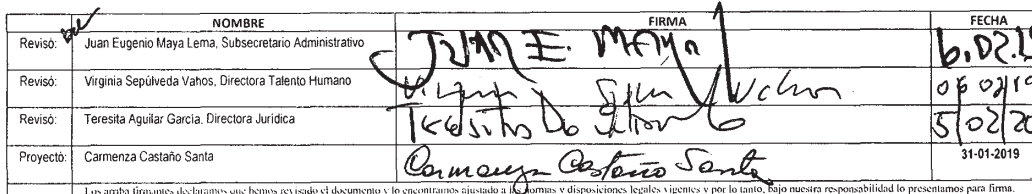 NOMBRE FIRMA FECHA
Revisó: Juan Eugenio Maya Lema, Subsecretario Administrativo JUAN E. MAYA 6.02.19
Revisó: Virginia Sepúlveda Vahos, Directora Talento Humano 06 02/19
Revisó: Teresita Aguilar García, Directora Jurídica Teresita 5/02/20
Proyectó: Carmenza Castaño Santa Carmenza Castaño Santa 31-01-2019
Los arriba firmantes declaramos que hemos revisado el documento y lo encontramos ajustado a las normas y disposiciones legales vigentes y por lo tanto, bajo nuestra responsabilidad lo presentamos para firma.